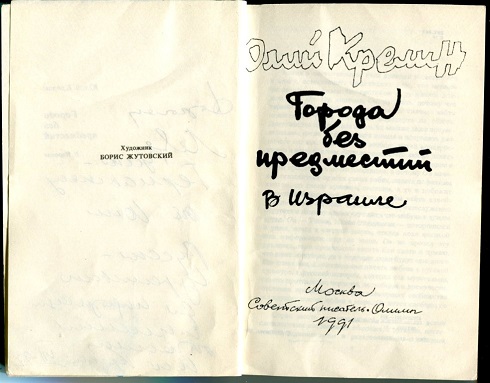 Художник
БОРИС ЖУТОВСКИЙ
олий Крелин
Города
без
предместий
В Израиле
Москва
Советский писатель · Олимп
1991